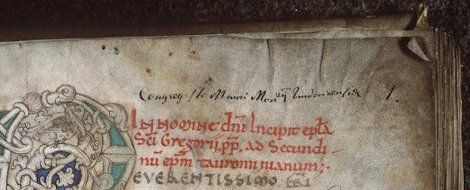 Congreg. Sti Mauri Mon 1.
IN NOMINE dñi Incipit epła
Sci Gregorii pp. ad Secundi-
nū epm tauromnianum;
EVERENTISSIMO